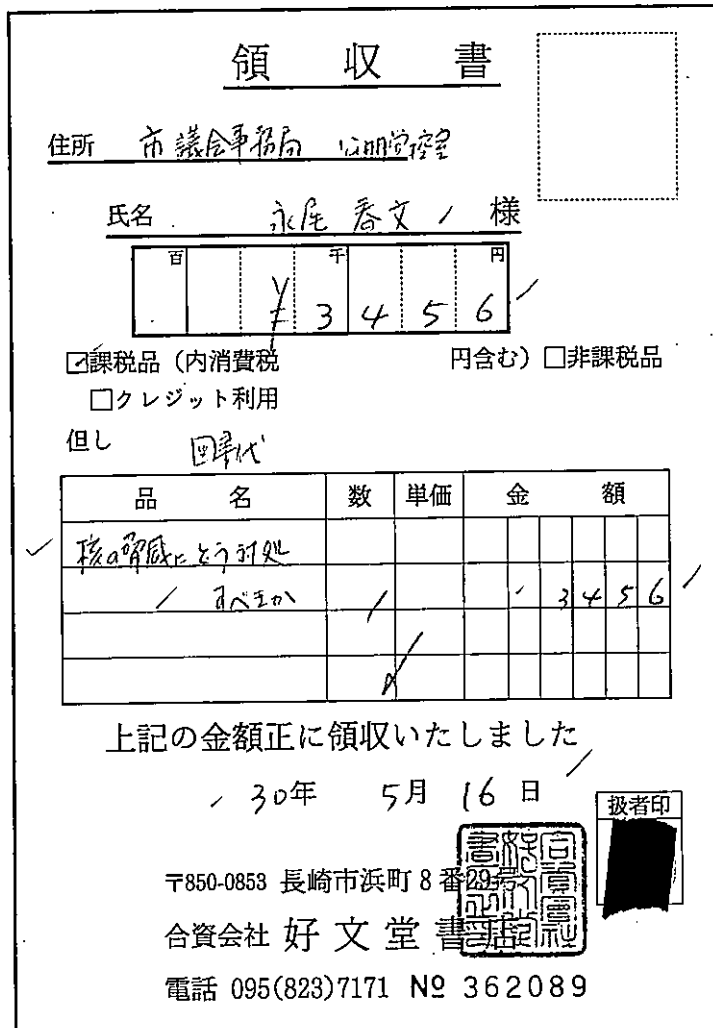 領収書
住所 市議会事務局 公明党控室
氏名 永尾春文 様
百 千 円
¥3456
☑課税品（内消費税 円含む）□非課税品
□クレジット利用
但し 図書代
品名 数 単価 金額
核の脅威にどう対処
すべきか 1 3456
上記の金額正に領収いたしました
30年 5月 16日
扱者印
〒850-0853 長崎市浜町8番29号
合資会社 好文堂書店
電話 095(823)7171 № 362089